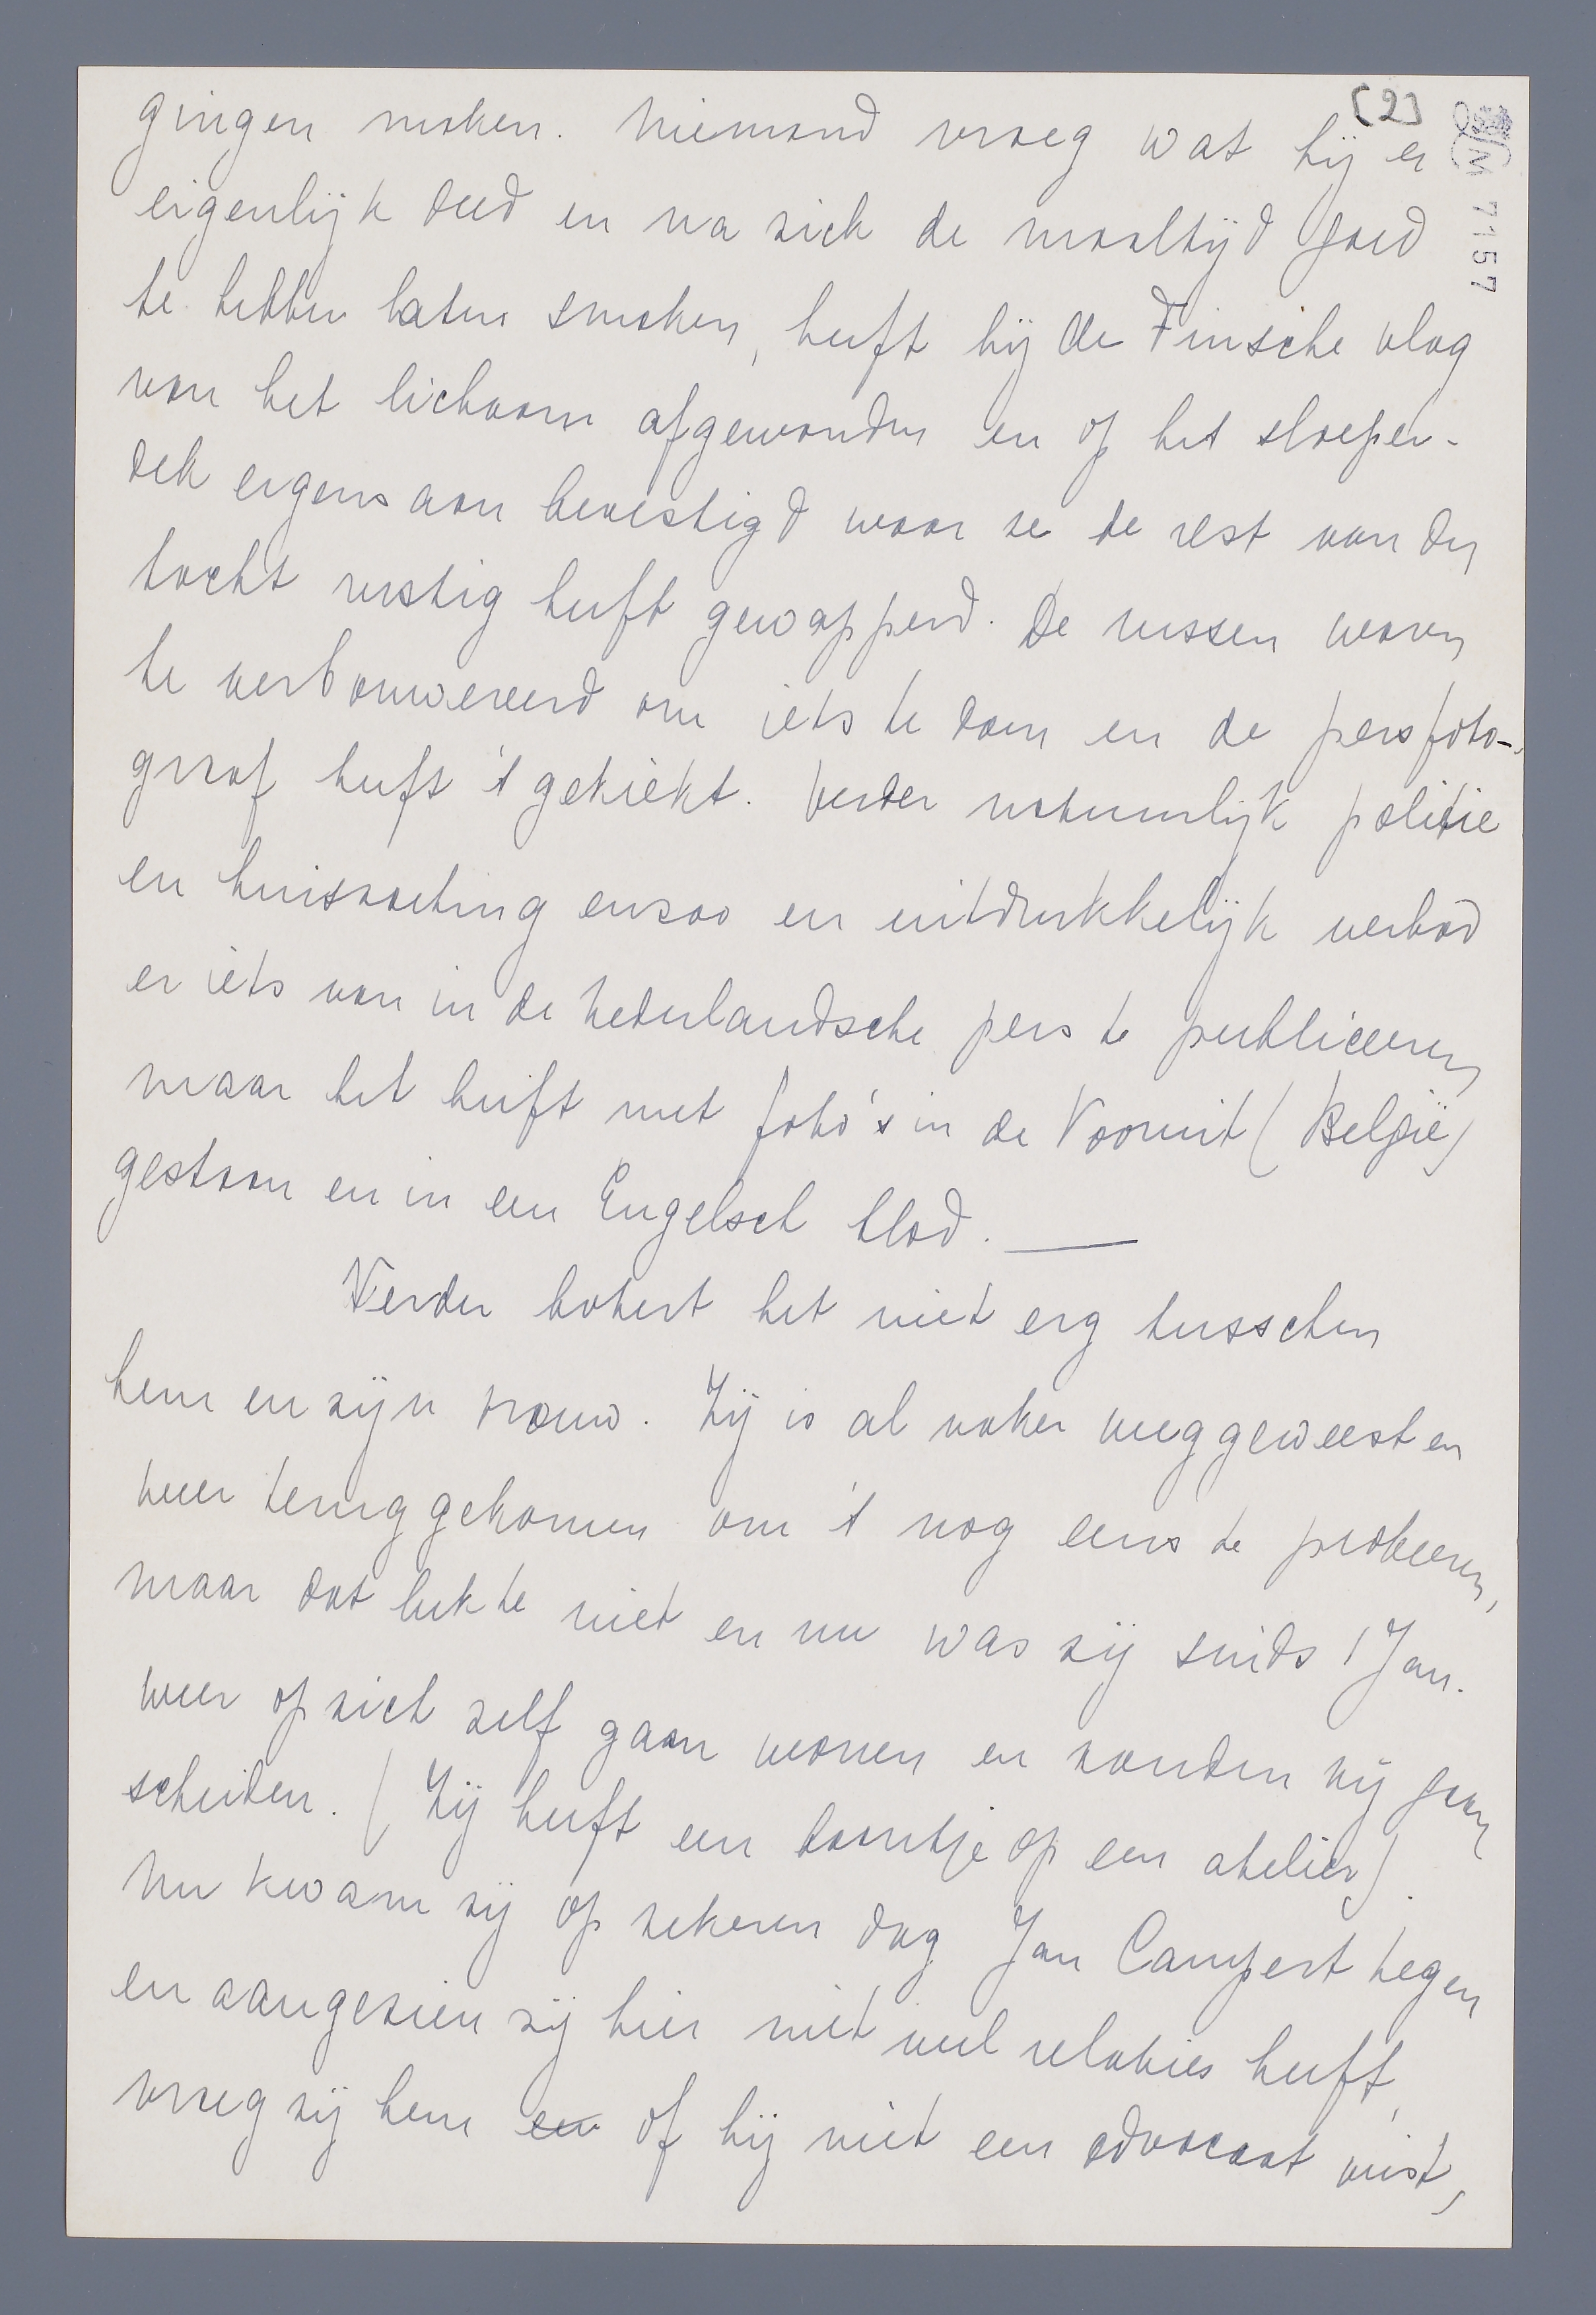 [2]
gingen maken. Niemand vroeg wat hij er
eigenlijk deed en na zich de maaltijd goed
te hebben laten smaken, heeft hij de Finsche vlag
van het lichaam afgewonden en op het sloepen-
dek ergens aan bevestigd waar ze de rest van den
tocht rustig heeft gewapperd. De russen waren
te verbouwereerd om iets te doen en de persfoto-
graaf heeft 't gekiekt. Verder natuurlijk politie
en huiszoeking enzoo en uitdrukkelijk verbod
er iets van in de Nederlandsche pers te publiceeren,
maar het heeft met foto's in de Vooruit (België)
gestaan en in een Engelsch blad. —
Verder botert het niet erg tusschen
hem en zijn vrouw. Zij is al vaker weggeweest en
weer teruggekomen om 't nog eens te probeeren,
maar dat lukte niet en nu was zij sinds 1 Jan.
weer op zich zelf gaan wonen en zouden zij gaan
scheiden. (Zij heeft een baantje op een atelier).
Nu kwam zij op zekeren dag Jan Campert tegen
en aangezien zij hier niet veel relaties heeft,
vroeg zij hem en of hij niet een advocaat wist,
M 7157